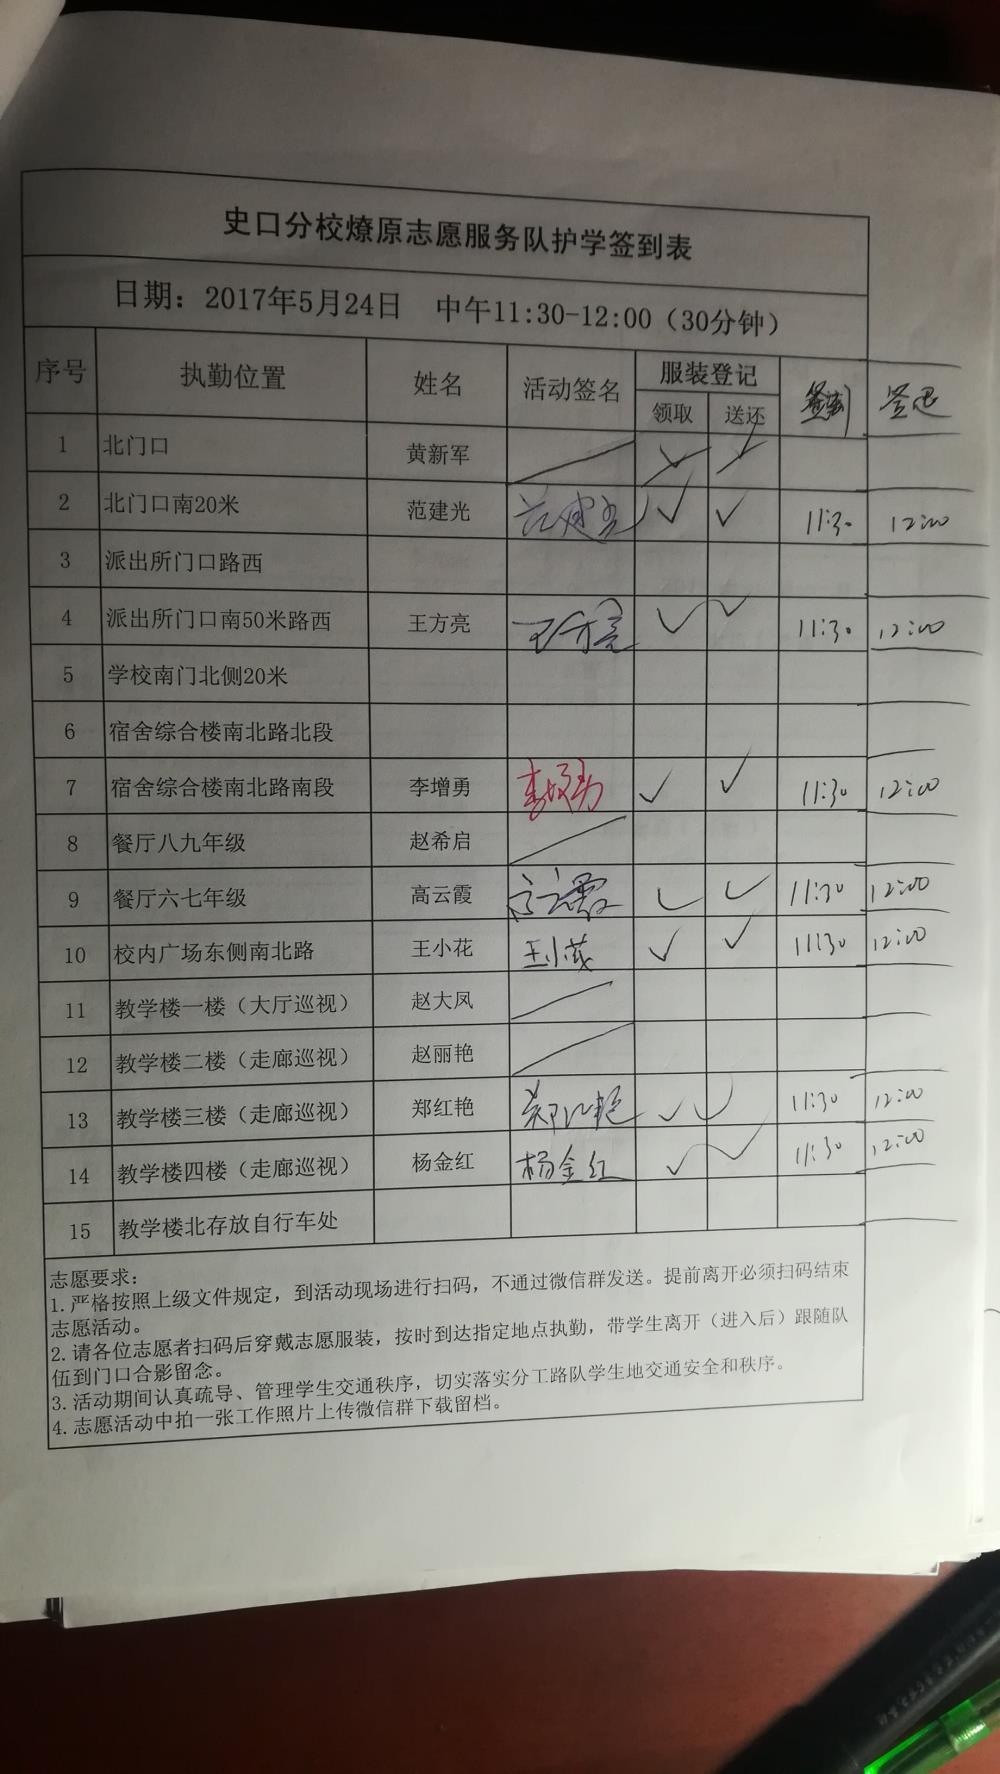 史口分校燎原志愿服务队护学签到表
日期：2017年5月24日 中午11:30-12:00（30分钟）
序号 执勤位置 姓名 活动签名 服装登记 签到 签退
领取 送还
1 北门口 黄新军
2 北门口南20米 范建光 范建光 ✓ ✓ 11:30 12:00
3 派出所门口路西
4 派出所门口南50米路西 王方亮 王方亮 ✓ ✓ 11:30 12:00
5 学校南门北侧20米
6 宿舍综合楼南北路北段
7 宿舍综合楼南北路南段 李增勇 李增勇 ✓ ✓ 11:30 12:00
8 餐厅八九年级 赵希启
9 餐厅六七年级 高云霞 高云霞 ✓ ✓ 11:30 12:00
10 校内广场东侧南北路 王小花 王小花 ✓ ✓ 11:30 12:00
11 教学楼一楼（大厅巡视） 赵大凤
12 教学楼二楼（走廊巡视） 赵丽艳
13 教学楼三楼（走廊巡视） 郑红艳 郑红艳 ✓ ✓ 11:30 12:00
14 教学楼四楼（走廊巡视） 杨金红 杨金红 ✓ ✓ 11:30 12:00
15 教学楼北存放自行车处
志愿要求：
1.严格按照上级文件规定，到活动现场进行扫码，不通过微信群发送。提前离开必须扫码结束
志愿活动。
2.请各位志愿者扫码后穿戴志愿服装，按时到达指定地点执勤，带学生离开（进入后）跟随队
伍到门口合影留念。
3.活动期间认真疏导、管理学生交通秩序，切实落实分工路队学生地交通安全和秩序。
4.志愿活动中拍一张工作照片上传微信群下载留档。